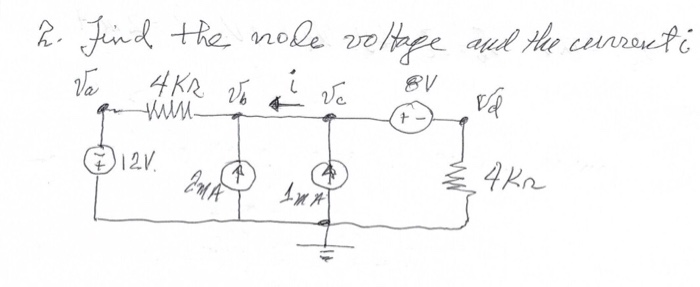 2. Find the node voltage and the current i
Va 4KΩ Vb i Vc 8V Vd
+ -
- + 12V.
2mA 1mA 4KΩ